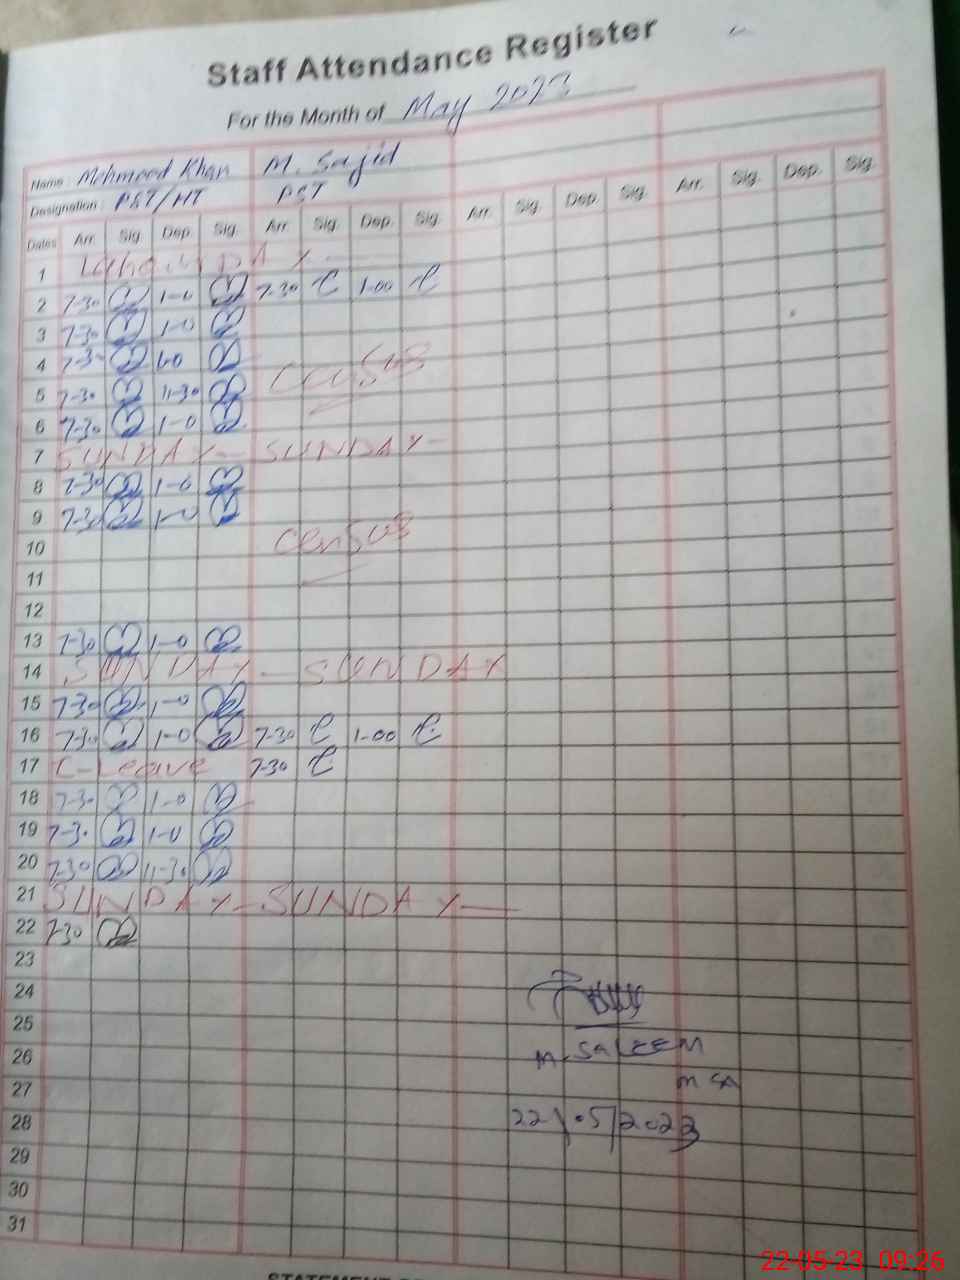 Staff Attendance Register
For the Month of May 2023
Name: Mehmood Khan M. Sajid
Designation: PST/HT PST
Dates Arr. Sig. Dep. Sig. Arr. Sig. Dep. Sig. Arr. Sig. Dep. Sig. Arr. Sig. Dep. Sig.
1 DAY
2 7-30 1-0 7-30 1-00
3 7-30 1-0
4 7-30 1-0 Census
5 7-30 11-30
6 7-30 1-0
7 SUNDAY - SUNDAY -
8 7-30 1-0
9 7-30 1-0
10 Census
11
12
13 7-30 1-0
14 SUNDAY - SUNDAY
15 7-30 1-0
16 7-30 1-0 7-30 1-00
17 C-Leave 7-30
18 7-30 1-0
19 7-30 1-0
20 7-30 11-30
21 SUNDAY - SUNDAY -
22 7-30
23
24
25
26 M. SALEEM
27 MEA
28 22/05/2023
29
30
31
22-05-23 09:26